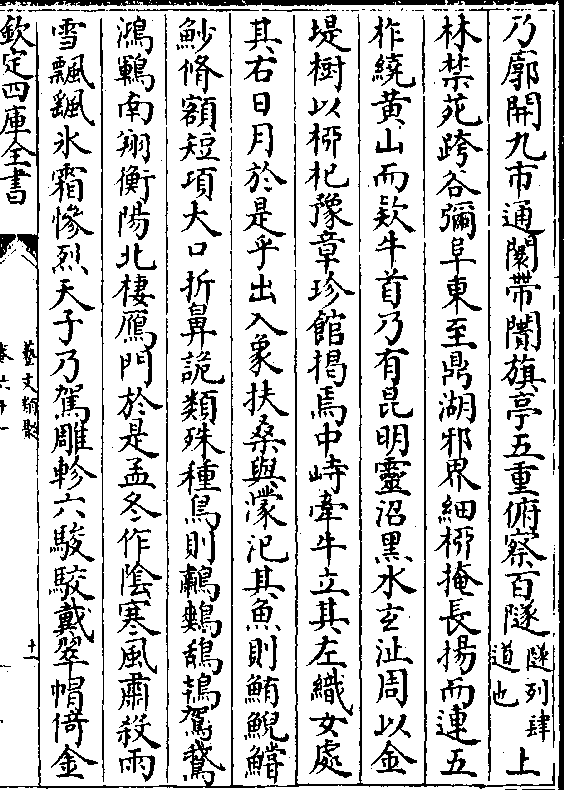 乃廓開九市通闤帶闠旗亭五重俯察百隧隧列肆道也上
林禁苑跨谷彌阜東至鼎湖邪界細桞掩長揚而連五
柞繞黄山而欵牛首乃有昆明靈沼黑水玄沚周以金
堤樹以桞杞豫章珍館揭焉中峙牽牛立其左織女處
其右日月於是乎出入象扶桑與濛汜其魚則鮪鯢鱨
魦脩額短項大口折鼻詭類殊種鳥則鷫鷞鴰鴇鴐鵞
鴻鶤南翔衡陽北棲鴈門於是孟冬作陰寒風肅殺雨
雪飄飄氷霜慘烈天子乃駕雕軫六駿駮戴翠帽倚金
欽定四庫全書
藝文類聚
十一